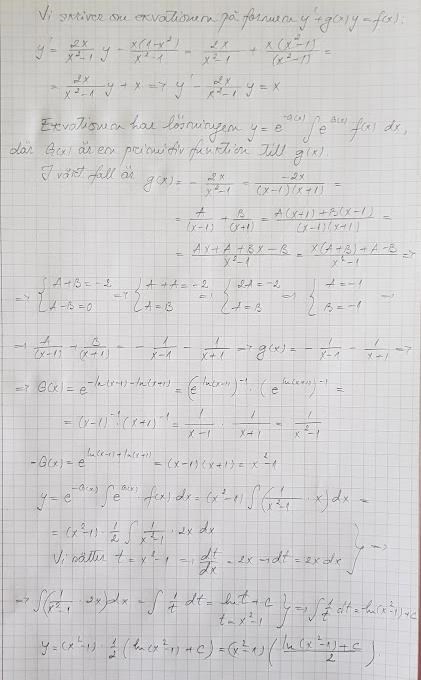 Vi skriver om ekvationen på formen y' + g(x) y = f(x):
y' = 2x/(x²-1) y - x(1-x²)/(x²-1) = 2x/(x²-1) + x(x²-1)/(x²-1) =
= 2x/(x²-1) y + x => y' - 2x/(x²-1) y = x
Ekvationen har lösningen y = e^(-G(x)) ∫ e^(G(x)) f(x) dx,
där G(x) är en primitiv funktion till g(x).
I vårt fall är g(x) = - 2x/(x²-1) = -2x/((x-1)(x+1)) =
= A/(x-1) + B/(x+1) = (A(x+1) + B(x-1))/((x-1)(x+1)) =
= (Ax + A + Bx - B)/(x²-1) = (x(A+B) + A-B)/(x²-1) =>
=> { A+B = -2, A-B = 0 => { A+A = -2, A = B => { 2A = -2, A = B => { A = -1, B = -1 =>
=> A/(x-1) + B/(x+1) = - 1/(x-1) - 1/(x+1) => g(x) = - 1/(x-1) - 1/(x+1) =>
=> G(x) = e^(-ln(x-1)-ln(x+1)) = (e^(ln(x-1)))^(-1) · (e^(ln(x+1)))^(-1) =
= (x-1)^(-1) · (x+1)^(-1) = 1/(x-1) · 1/(x+1) = 1/(x²-1)
-G(x) = e^(ln(x-1)+ln(x+1)) = (x-1)(x+1) = x²-1
y = e^(-G(x)) ∫ e^(G(x)) f(x) dx = (x²-1) ∫ (1/(x²-1) · x) dx =
= (x²-1) · 1/2 ∫ 1/(x²-1) · 2x dx
Vi sätter t = x²-1 => dt/dx = 2x => dt = 2x dx } =>
=> ∫ (1/(x²-1) · 2x) dx = ∫ 1/t dt = ln t + C, t = x²-1 } => ∫ 1/t dt = ln(x²-1) + C
y = (x²-1) · 1/2 (ln(x²-1) + C) = (x²-1) ((ln(x²-1) + C)/2).